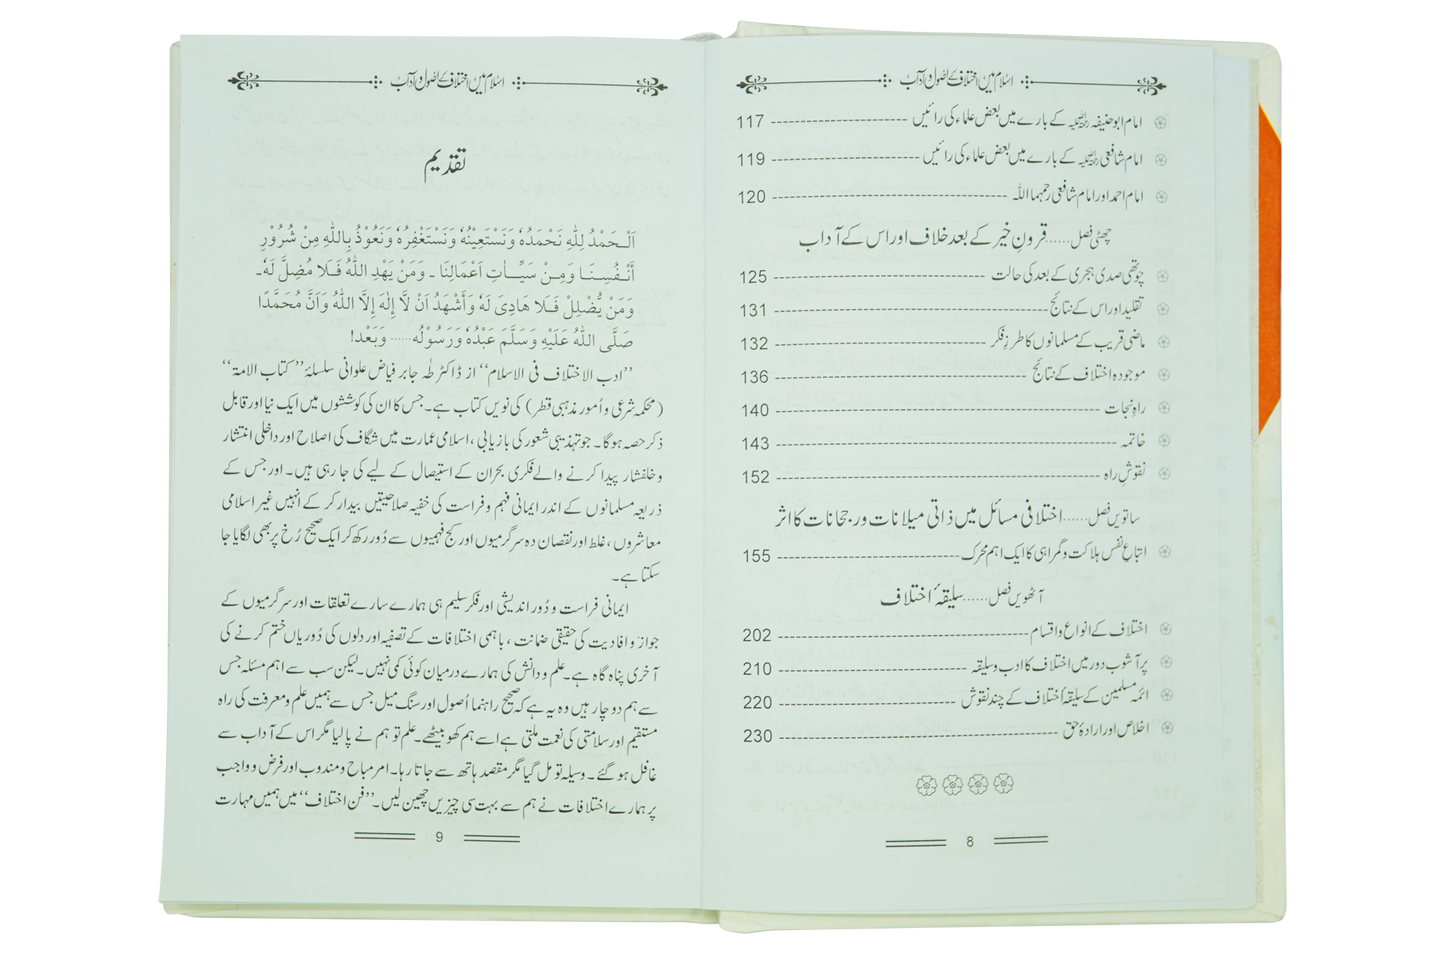 اسلام میں اختلاف کے اصول و آداب
امام ابوحنیفہ رحمۃ اللہ علیہ کے بارے میں بعض علماء کی رائیں 117
امام شافعی رحمۃ اللہ علیہ کے بارے میں بعض علماء کی رائیں 119
امام احمد اور امام شافعی رحمہما اللہ 120
چھٹی فصل......قرونِ خیر کے بعد خلاف اور اس کے آداب
چوتھی صدی ہجری کے بعد کی حالت 125
تقلید اور اس کے نتائج 131
ماضی قریب کے مسلمانوں کا طرزِ فکر 132
موجودہ اختلاف کے نتائج 136
راہِ نجات 140
خاتمہ 143
نقوشِ راہ 152
ساتویں فصل......اختلافی مسائل میں ذاتی میلانات ورجحانات کا اثر
اتباعِ نفس ہلاکت و گمراہی کا ایک اہم محرک 155
آٹھویں فصل......سلیقۂ اختلاف
اختلاف کے انواع و اقسام 202
پرآشوب دور میں اختلاف کا ادب و سلیقہ 210
ائمہ مسلمین کے سلیقۂ اختلاف کے چند نقوش 220
اخلاص اور ارادۂ حق 230
8
اسلام میں اختلاف کے اصول و آداب
تقدیم
اَلْحَمْدُ لِلّٰہِ نَحْمَدُہٗ وَنَسْتَعِیْنُہٗ وَنَسْتَغْفِرُہٗ وَنَعُوْذُ بِاللّٰہِ مِنْ شُرُوْرِ
اَنْفُسِنَا وَمِنْ سَیِّاٰتِ اَعْمَالِنَا ۔ وَمَنْ یَھْدِ اللّٰہُ فَلَا مُضِلَّ لَہٗ۔
وَمَنْ یُّضْلِلْ فَلَا ھَادِیَ لَہٗ وَاَشْھَدُ اَنْ لَّا اِلٰہَ اِلَّا اللّٰہُ وَاَنَّ مُحَمَّدًا
صَلَّی اللّٰہُ عَلَیْہِ وَسَلَّمَ عَبْدُہٗ وَرَسُوْلُہٗ...... وَبَعْد!
’’ادب الاختلاف فی الاسلام‘‘ از ڈاکٹر طٰہٰ جابر فیاض علوانی سلسلۂ ’’کتاب الامۃ‘‘
(محکمہ شرعی و اُمور مذہبی قطر) کی نویں کتاب ہے۔ جس کا ان کی کوششوں میں ایک نیا اور قابل
ذکر حصہ ہوگا۔ جو تہذیبی شعور کی بازیابی، اسلامی عمارت میں شگاف کی اصلاح اور داخلی انتشار
و خلفشار پیدا کرنے والے فکری بحران کے استیصال کے لیے کی جا رہی ہیں۔ اور جس کے
ذریعہ مسلمانوں کے اندر ایمانی فہم و فراست کی خفیہ صلاحیتیں بیدار کر کے انہیں غیر اسلامی
معاشروں، غلط اور نقصان دہ سرگرمیوں اور کج فہمیوں سے دُور رکھ کر ایک صحیح رُخ پر بھی لگایا جا
سکتا ہے۔
ایمانی فراست و دُور اندیشی اور فکر سلیم ہی ہمارے سارے تعلقات اور سرگرمیوں کے
جواز و افادیت کی حقیقی ضمانت، باہمی اختلافات کے تصفیہ اور دلوں کی دُوریاں ختم کرنے کی
آخری پناہ گاہ ہے۔ علم و دانش کی ہمارے درمیان کوئی کمی نہیں۔ لیکن سب سے اہم مسئلہ جس
سے ہم دوچار ہیں وہ یہ ہے کہ صحیح راہنما اُصول اور سنگ میل جس سے ہمیں علم و معرفت کی راہ
مستقیم اور سلامتی کی نعمت ملتی ہے اسے ہم کھو بیٹھے۔ علم تو ہم نے پا لیا مگر اس کے آداب سے
غافل ہو گئے۔ وسیلہ تو مل گیا مگر مقصد ہاتھ سے جاتا رہا۔ امر مباح و مندوب اور فرض و واجب
پر ہمارے اختلافات نے ہم سے بہت سی چیزیں چھین لیں۔ ’’فن اختلاف‘‘ میں ہمیں مہارت
9